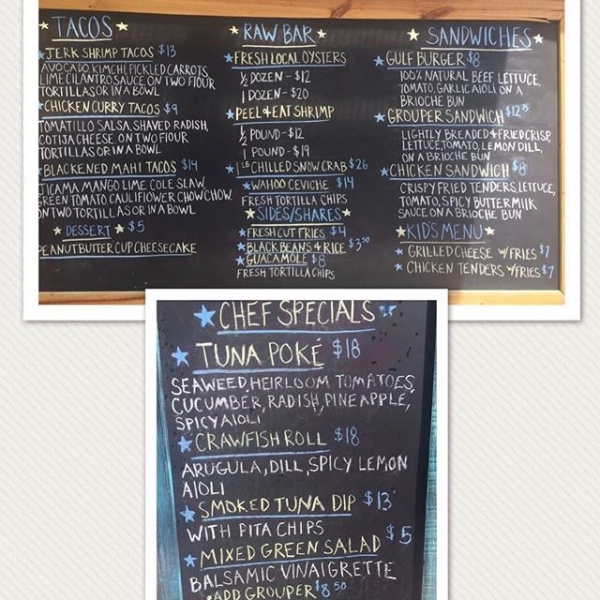 TACOS
JERK SHRIMP TACOS $13
AVOCADO, KIMCHI, PICKLED CARROTS,
LIME CILANTRO SAUCE ON TWO FLOUR
TORTILLAS OR IN A BOWL
CHICKEN CURRY TACOS $9
TOMATILLO SALSA, SHAVED RADISH,
COTIJA CHEESE ON TWO FLOUR
TORTILLAS OR IN A BOWL
BLACKENED MAHI TACOS $14
JICAMA MANGO LIME COLE SLAW,
GREEN TOMATO CAULIFLOWER CHOW CHOW,
ON TWO TORTILLAS OR IN A BOWL
DESSERT $5
PEANUT BUTTER CUP CHEESECAKE
RAW BAR
FRESH LOCAL OYSTERS
½ DOZEN - $12
1 DOZEN - $20
PEEL & EAT SHRIMP
½ POUND - $12
1 POUND - $19
1 LB CHILLED SNOW CRAB $26
WAHOO CEVICHE $14
FRESH TORTILLA CHIPS
SIDES/SHARES
FRESH CUT FRIES $4
BLACK BEANS & RICE $3.50
GUACAMOLE $8
FRESH TORTILLA CHIPS
SANDWICHES
GULF BURGER $8
100% NATURAL BEEF, LETTUCE,
TOMATO, GARLIC AIOLI ON A
BRIOCHE BUN
GROUPER SANDWICH $12.75
LIGHTLY BREADED & FRIED CRISP,
LETTUCE, TOMATO, LEMON DILL,
ON A BRIOCHE BUN
CHICKEN SANDWICH $8
CRISPY FRIED TENDERS, LETTUCE,
TOMATO, SPICY BUTTERMILK
SAUCE ON A BRIOCHE BUN
KID'S MENU
GRILLED CHEESE W/FRIES $7
CHICKEN TENDERS W/FRIES $7
CHEF SPECIALS
TUNA POKÉ $18
SEAWEED, HEIRLOOM TOMATOES,
CUCUMBER, RADISH, PINEAPPLE,
SPICY AIOLI
CRAWFISH ROLL $18
ARUGULA, DILL, SPICY LEMON
AIOLI
SMOKED TUNA DIP $13
WITH PITA CHIPS
MIXED GREEN SALAD $5
BALSAMIC VINAIGRETTE
ADD GROUPER $8.50